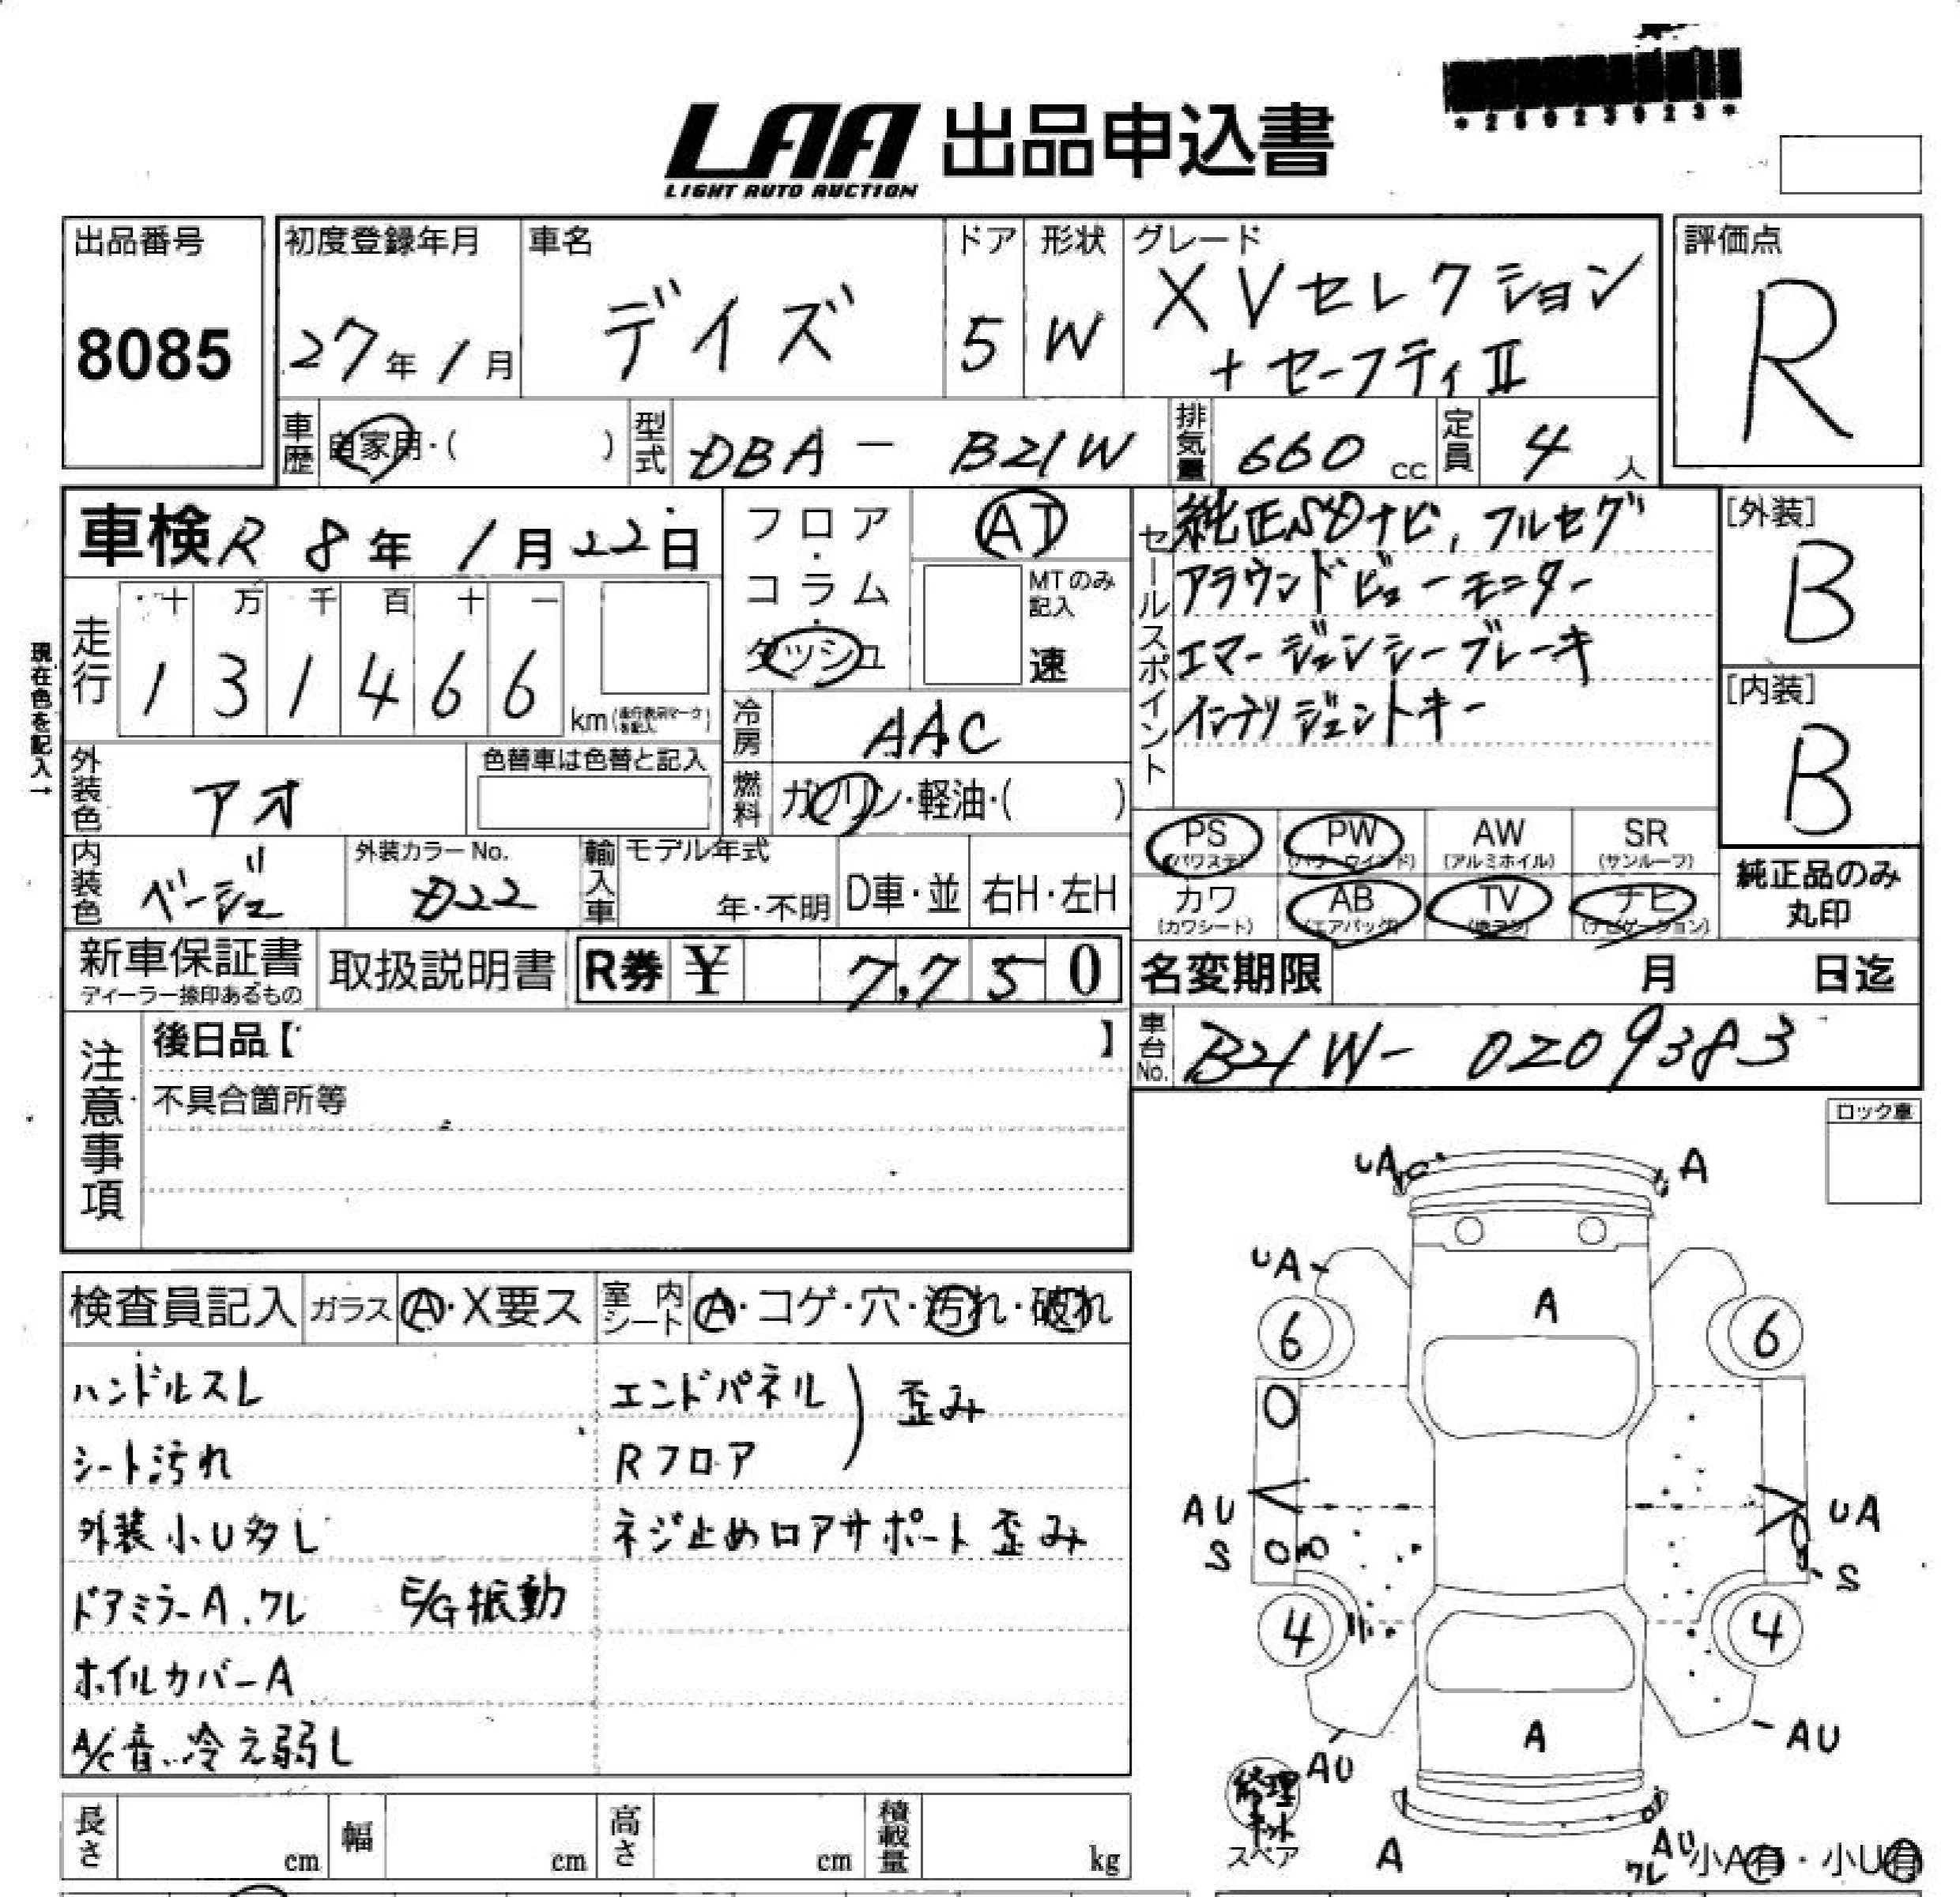 *25023923*
LAA 出品申込書
LIGHT AUTO AUCTION
出品番号
8085
初度登録年月
27年1月
車名
デイズ
ドア
5
形状
W
グレード
XVセレクション
+セーフティⅡ
評価点
R
車歴
自家用・( )
型式
DBA - B21W
排気量
660 cc
定員
4 人
車検 R 8年 1月 22日
現在色を記入→
走行
十 万 千 百 十 一
1 3 1 4 6 6
km
フロア・コラム・ダッシュ
AT
MTのみ記入
速
冷房
AAC
燃料
ガソリン・軽油・( )
セールスポイント
純正SDナビ, フルセグ
アラウンドビューモニター
エマージェンシーブレーキ
インテリジェントキー
[外装]
B
[内装]
B
外装色
アオ
色替車は色替と記入
内装色
ベージュ
外装カラーNo.
D22
輸入車
モデル年式
年・不明
D車・並
右H・左H
PS (パワステ)
PW (パワーウインド)
AW (アルミホイル)
SR (サンルーフ)
カワ (カワシート)
AB (エアバッグ)
TV
ナビ (ナビゲーション)
純正品のみ
丸印
新車保証書
ディーラー捺印あるもの
取扱説明書
R券 ¥ 7,750
名変期限 月 日迄
車台No.
B21W- 0209383
注意事項
後日品【 】
不具合箇所等
ロック車
検査員記入
ガラス
A・X要ス
室内シート
A・コゲ・穴・汚れ・破れ
ハンドルスレ
シート汚れ
外装小U多し
ドアミラーA.ワレ E/G振動
ホイルカバーA
A/C音、冷え弱し
エンドパネル
Rフロア
歪み
ネジ止めロアサポート歪み
UA
A
UA
A
6
6
AU
S
UA
S
4
4
A
AU
AU
修理キット
スペア
A
AU
ワレ
小A有・小U有
長さ cm
幅 cm
高さ cm
積載量 kg